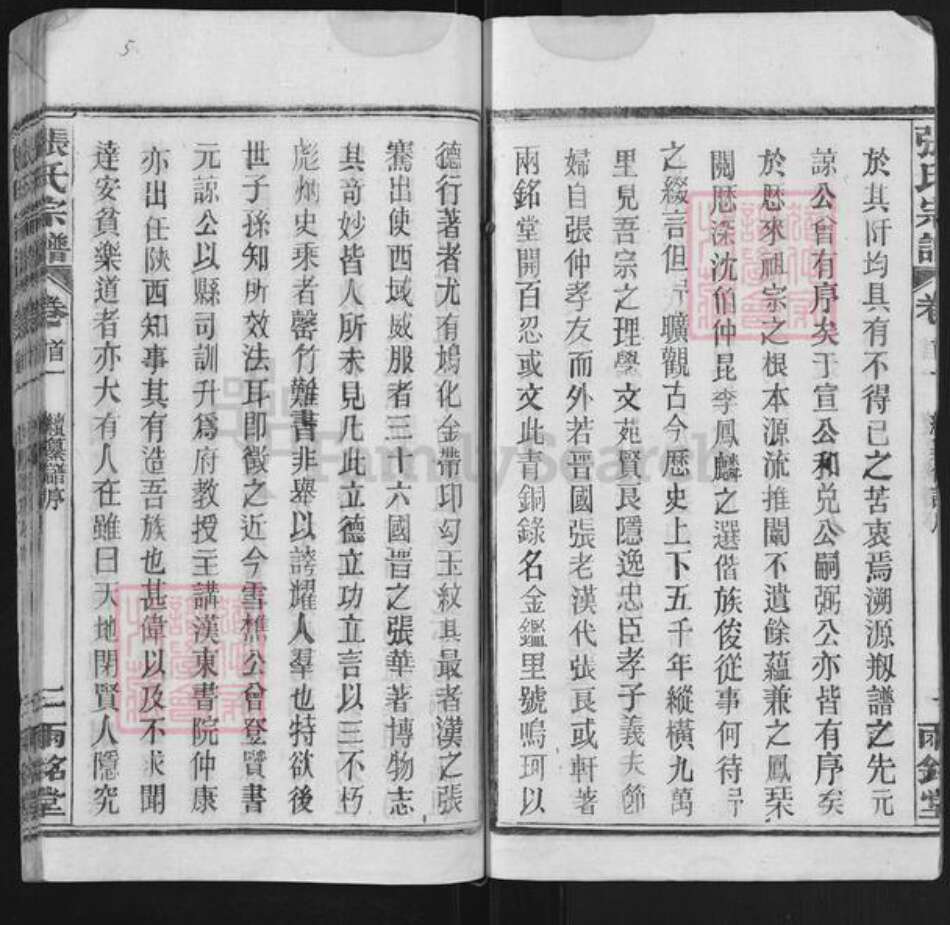 於其阡均具有不得已之苦衷焉溯源剏譜之先元
諒公曾有序矣于宣公和兑公嗣弼公亦皆有序矣
於歷來祖宗之根本源流推闡不遺餘蘊兼之鳳琹
閱歷深沈伯仲昆季鳳麟之選偕族俊從事何待
之綴言但曠觀古今歷史上下五千年縱橫九萬
里見吾宗之理學文苑賢良隱逸忠臣孝子義夫節
婦自張仲孝友而外若晋國張老漢代張良或軒著
兩銘堂開百忍或文此青銅錄名金鑑里號鳴珂以
張氏宗譜
卷首一
兩銘堂
德行著者尤有鳩化金帶印幻玉紋其最者漢之張
騫出使西域威服者三十六國晋之張華著博物志
其奇妙皆人所未見凡此立德立功立言以三不朽
彪炳史乘者罄竹難書非舉以誇耀人羣也特欲後
世子孫知所效法耳即徵之近今雪樵公曾登賢書
元諒公以縣司訓升爲府教授主講漢東書院仲康
亦出任陝西知事其有造吾族也甚偉以及不求聞
達安貧樂道者亦大有人在雖曰天地閉賢人隱究
張氏宗譜
卷首一
續纂譜序
二
兩銘堂
5
FamilySearch